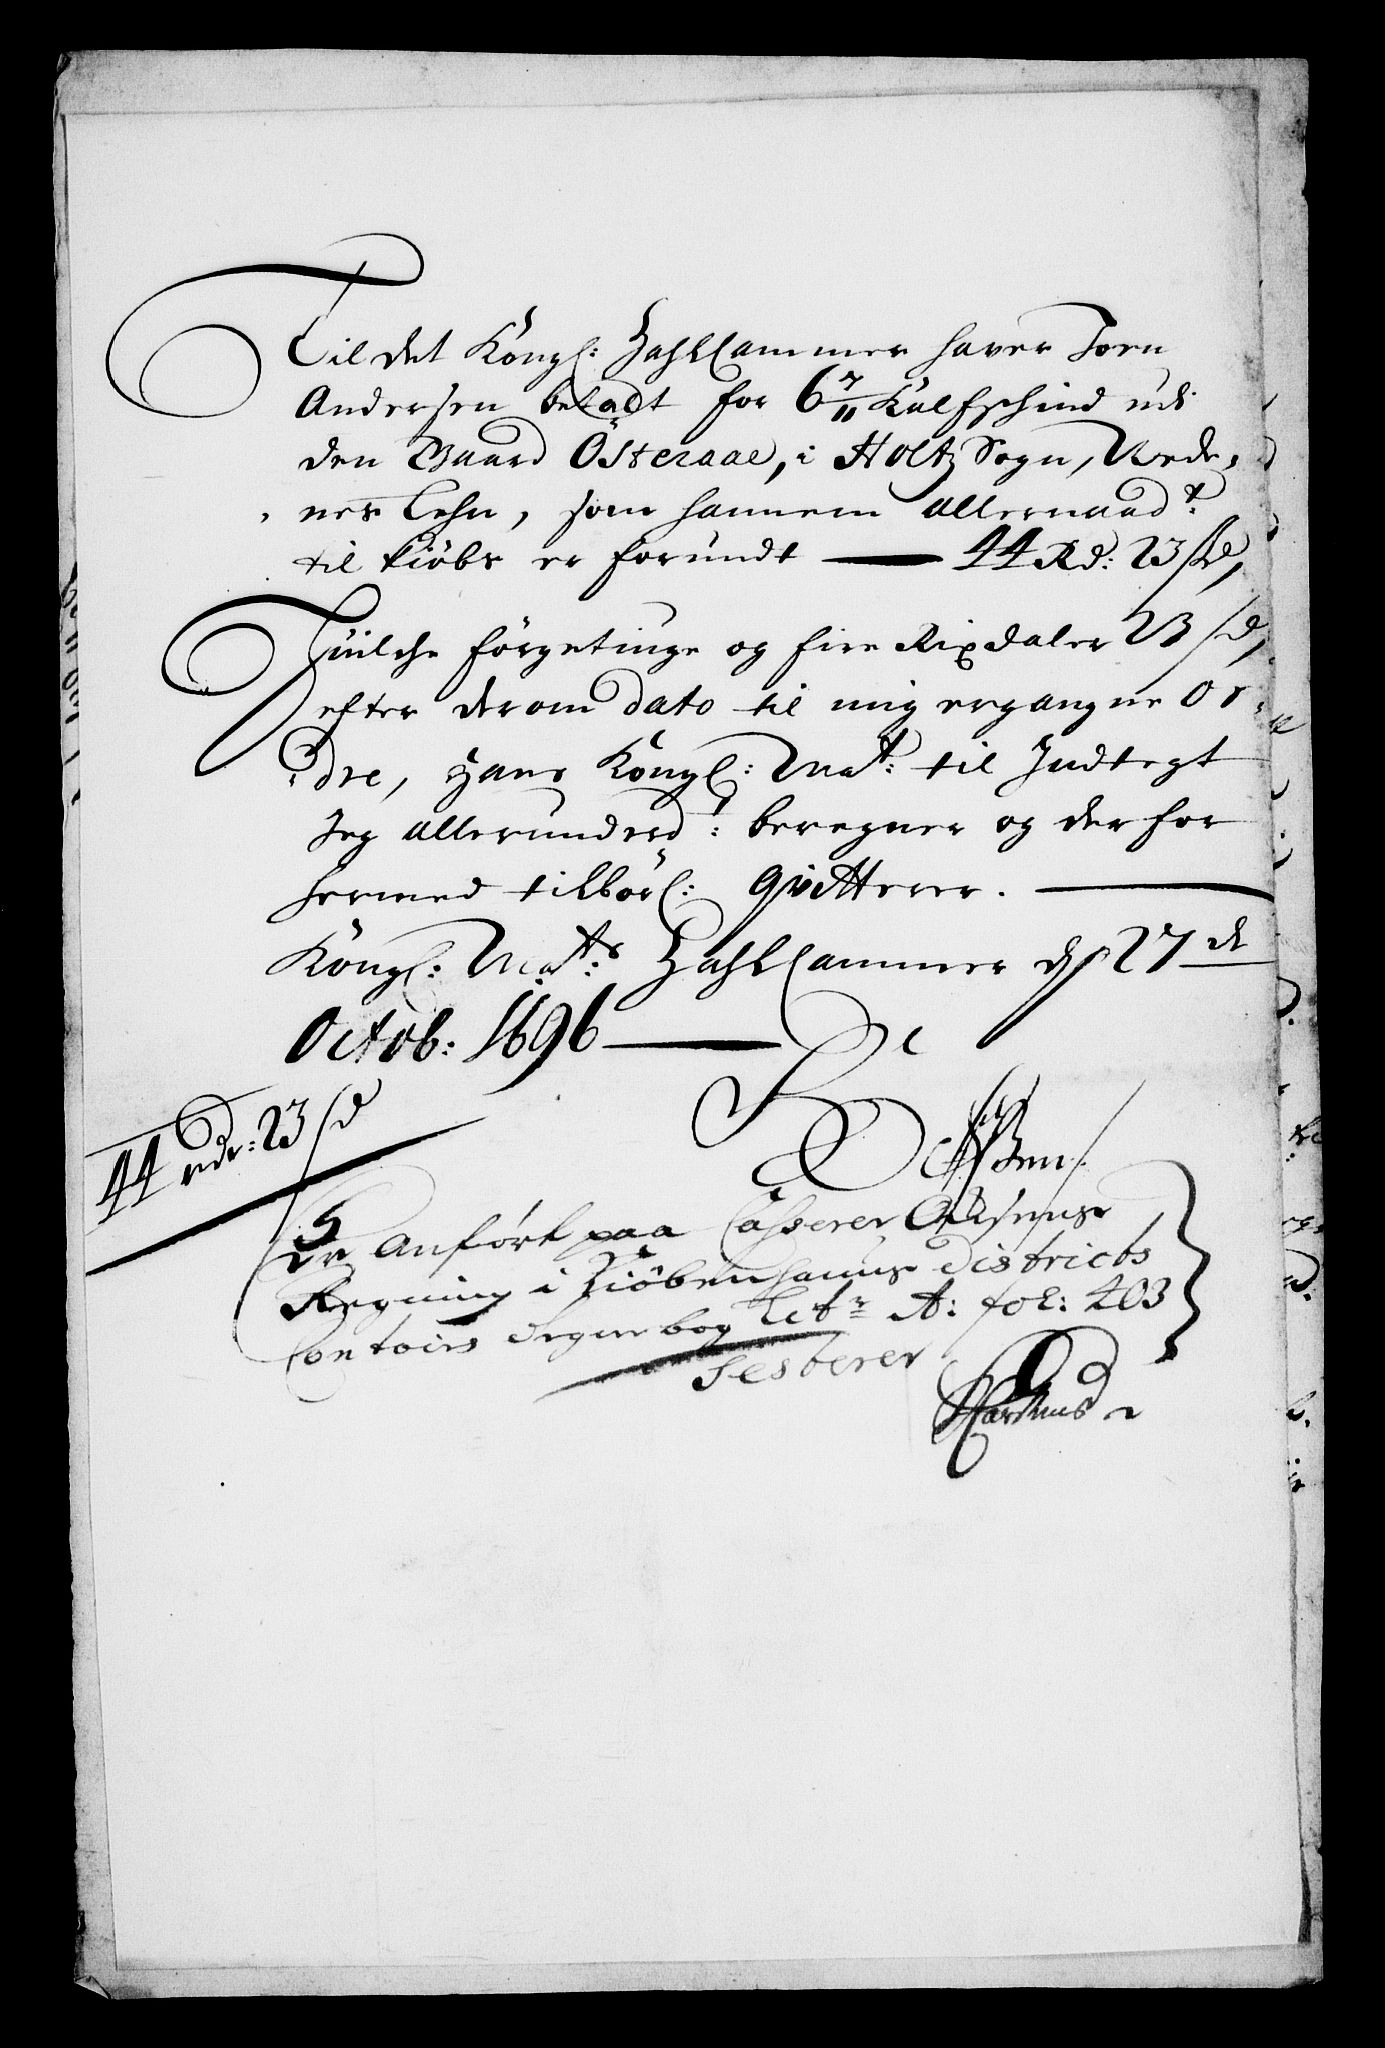 Til det Kongl: Zahlkammer haver Joen
Andersen betalt for 6 7/11 Kalfschind udi
den Gaard Österaae, i Holtz Sogn, Nede-
nes Lehn, som hannem allernaadt:
til kiöbs er forundt — 44 Rd: 23 sk,
Huilche förgetiuge og fire Rixdaler 23 sk,
efter derom dato til mig ergangne Or-
dre, Hans Kongl: Maÿt: til Indtegt
Jeg allerunderd: beregner og derfor
hermed tilbörl: qvitterer. —
Kongl: Maÿts: Zahlkammer d 27de
Octob: 1696 —
44 rdr: 23 sk
Er Anfört paa Casserer
Regning i Kiöbenhauns Districts
Contoirs Regnebog Letr A: fol: 403
Testerer